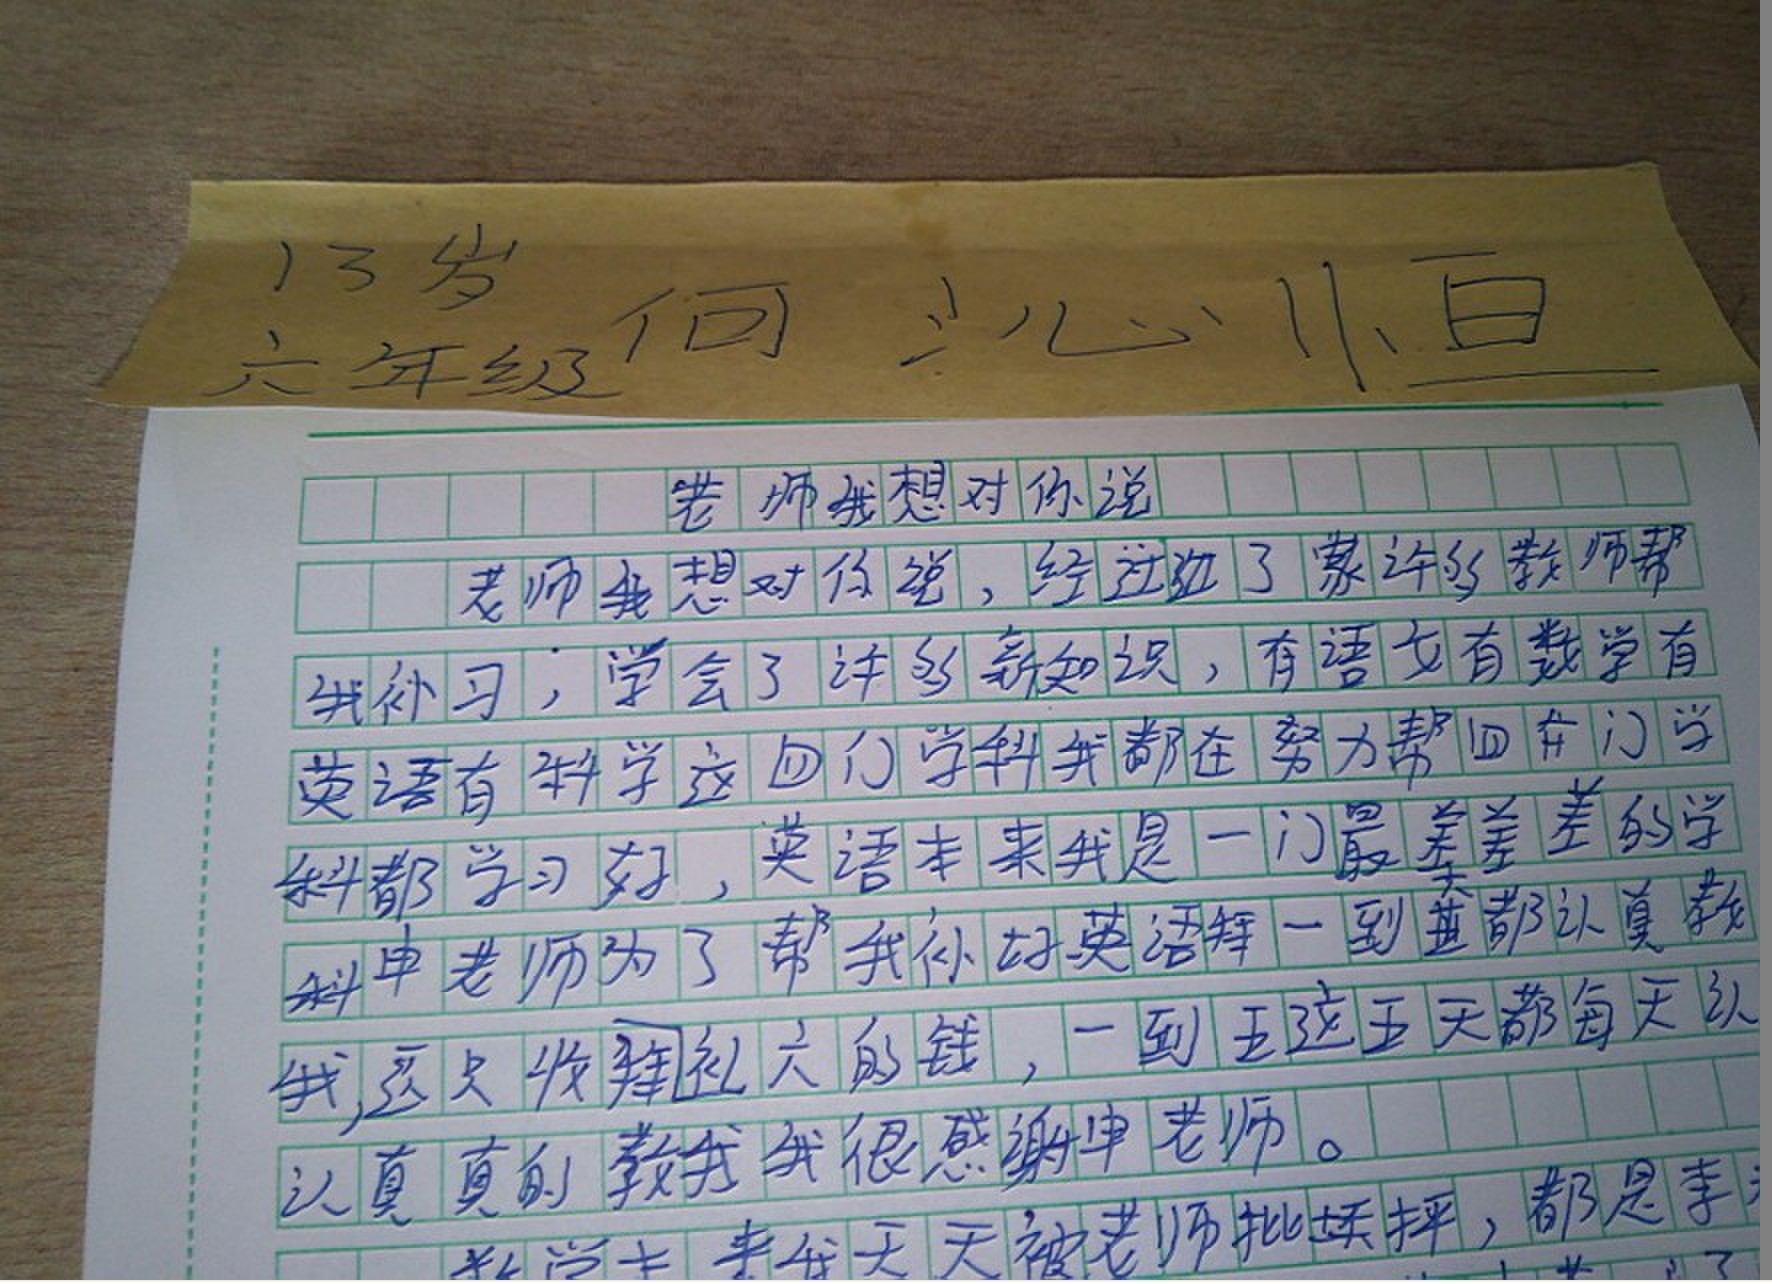 13岁
六年级 何沁恒
老师我想对你说
老师我想对你说，经过了许多教师帮
我补习，学会了许多新知识，有语文有数学有
英语有科学这四门学科我都在努力帮四门学
科都学习好，英语本来我是一门最差差差的学
科申老师为了帮我补好英语 一到 都认真教
我，还只收 礼六的钱，一到五这五天都每天认
认真真的教我我很感谢申老师。
数学本来我天天被老师批 评，都是李